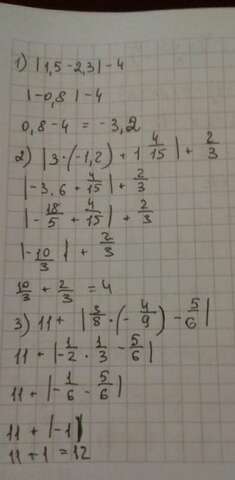 1) |1,5 - 2,3| - 4
|-0,8| - 4
0,8 - 4 = -3,2
2) |3·(-1,2) + 1 4/15| + 2/3
|-3,6 + 4/15| + 2/3
|-18/5 + 4/15| + 2/3
|-10/3| + 2/3
10/3 + 2/3 = 4
3) 11 + |3/8·(-4/9) - 5/6|
11 + |-1/2·1/3 - 5/6|
11 + |-1/6 - 5/6|
11 + |-1|
11 + 1 = 12